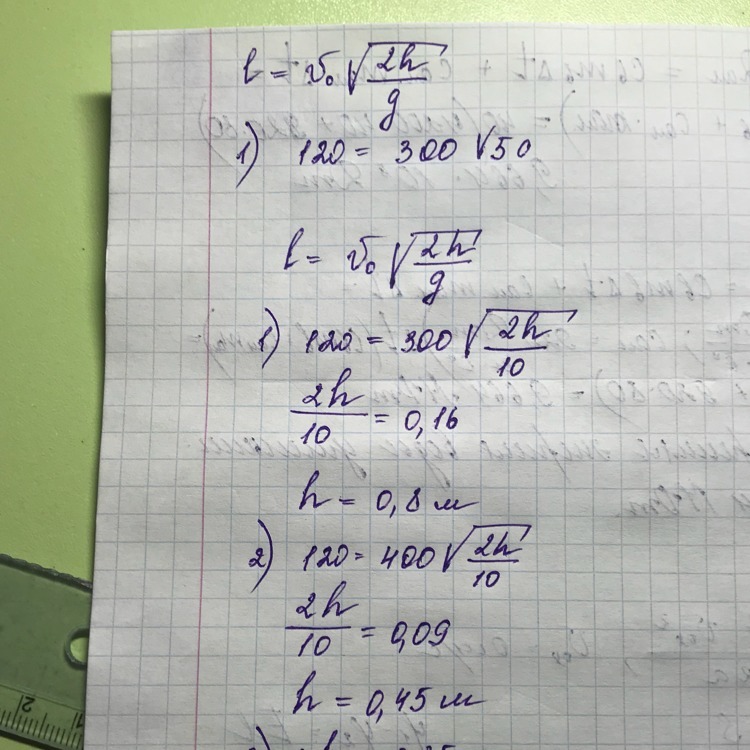 l = v₀ √(2h/g)
1) 120 = 300 √50
l = v₀ √(2h/g)
1) 120 = 300 √(2h/10)
2h/10 = 0,16
h = 0,8 м
2) 120 = 400 √(2h/10)
2h/10 = 0,09
h = 0,45 м